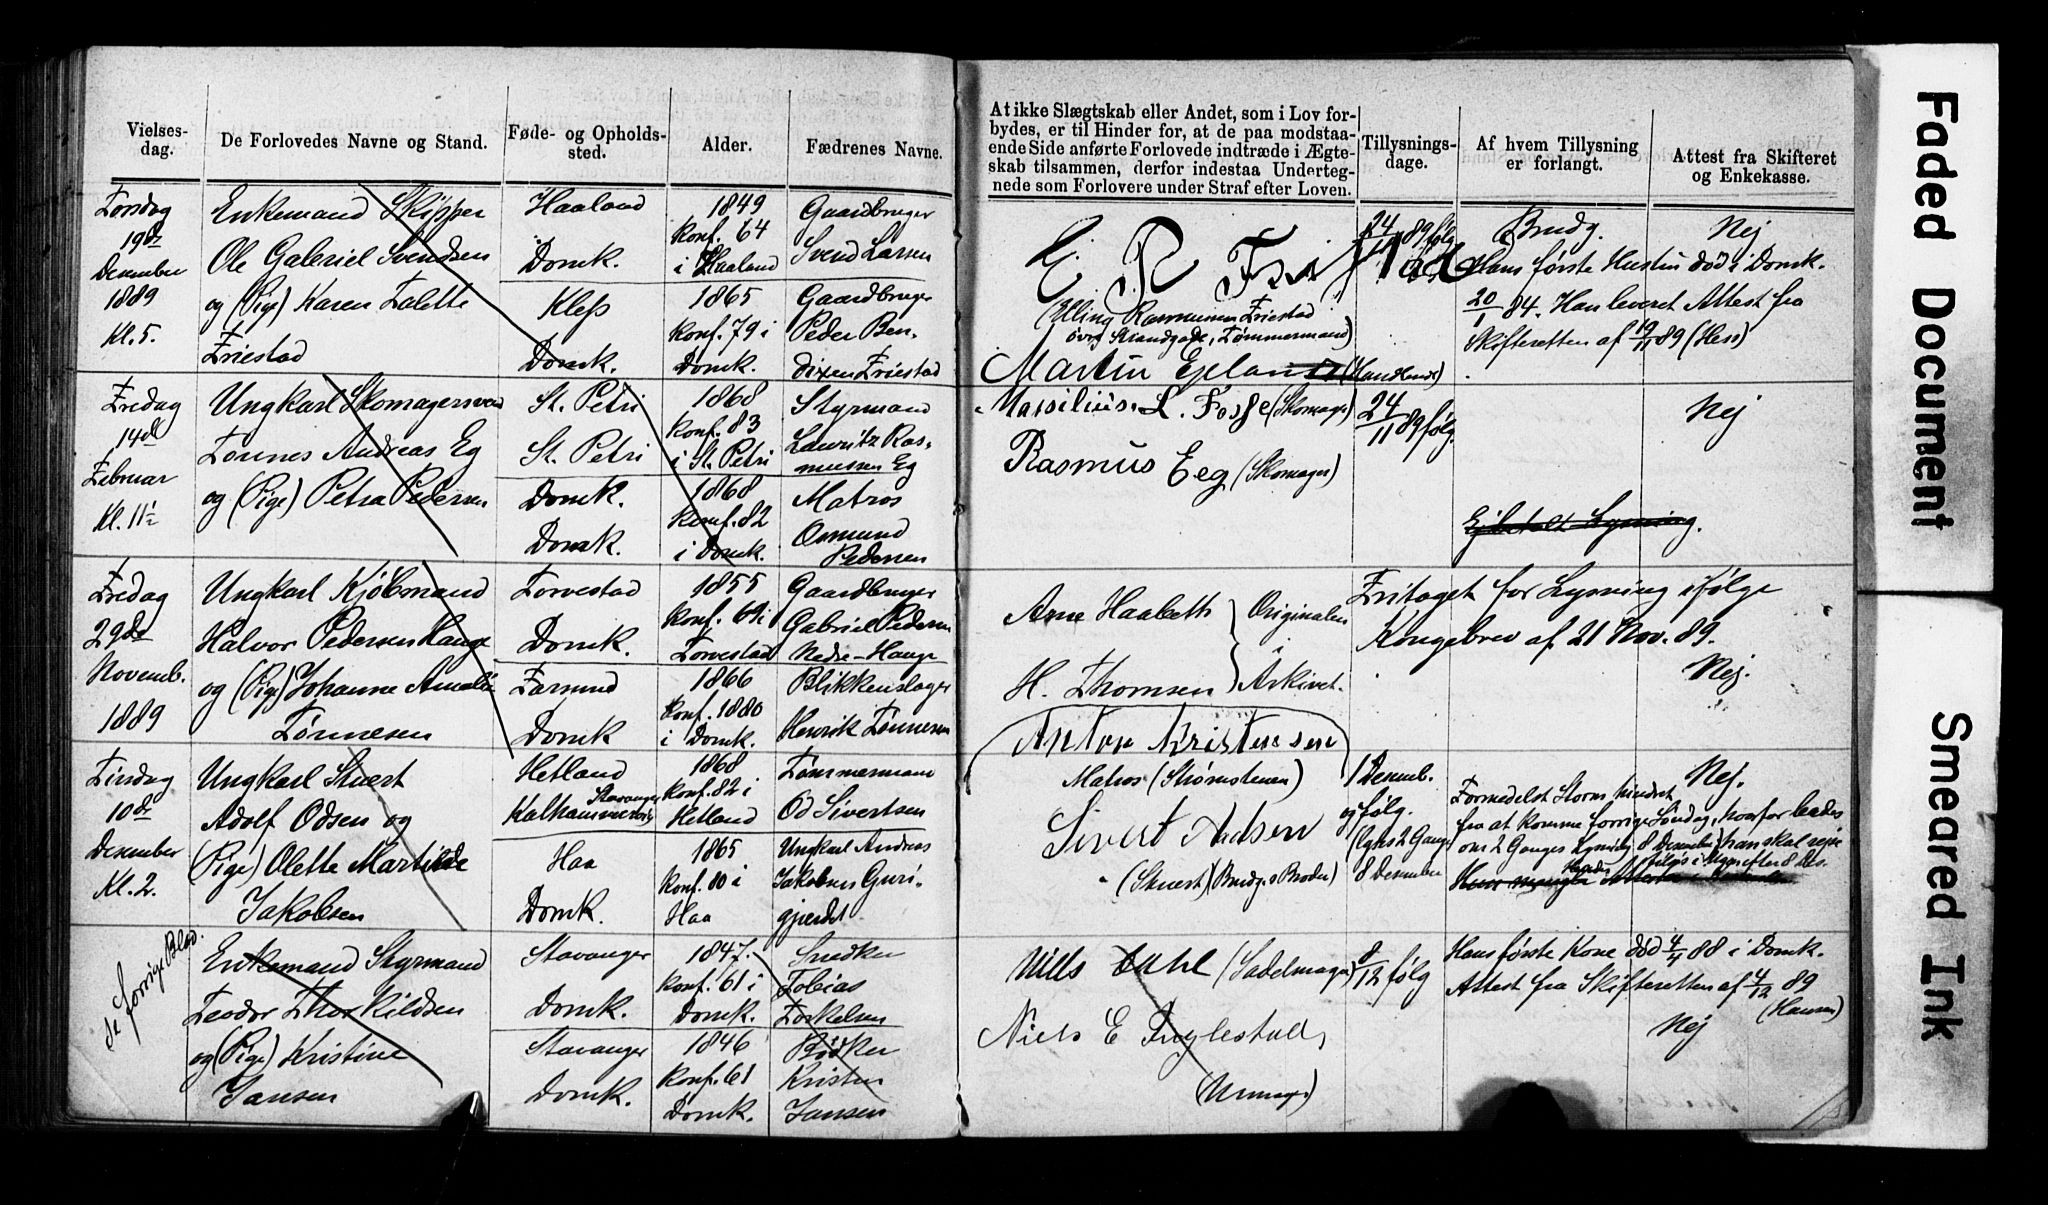 Vielses-
dag.
De Forlovedes Navne og Stand.
Føde- og Opholds-
sted.
Alder.
Fædrenes Navne.
At ikke Slægtskab eller Andet, som i Lov for-
bydes, er til Hinder for, at de paa modstaa-
ende Side anførte Forlovede indtræde i Ægte-
skab tilsammen, derfor indestaa Underteg-
nede som Forlovere under Straf efter Loven.
Tillysnings-
dage.
Af hvem Tillysning
er forlangt.
Attest fra Skifteret
og Enkekasse.
Torsdag
19de
Desember
1889
Kl. 5.
Enkemand Skipper
Ole Gabriel Svendsen
og (Pige) Karen Talette
Friestad
Haaland
Domk.
Klep
Domk.
1849
Konf. 64
i Haaland
1865
Konf. 79 i
Domk.
Gaardbruger
Svend Larsen
Gaardbruger
Peder Ben-
dixen Friestad
E. R. Fristad
(Elling Rasmussen Friestad
øvr Strandgade, Tømmermand)
Martin Egeland (Handlende)
24
89 følg
Brudg.
Nej
Hans første Hustru død i Domk.
20/1 84. Han leveret Attest fra
Skifteretten af 19/11 89 (Hess)
Fredag
14de
Februar
Kl. 11½
Ungkarl Skomagersvend
Tønnes Andreas Eg
og (Pige) Petra Pedersen
St. Petri
St. Petri
Domk.
Domk.
1868
Konf. 83
i St. Petri
1868
Konf. 82
i Domk.
Styrmand
Lauritz Ras-
mussen Eg
Matros
Osmund
Pedersen
Marsilius L. Fosse (Skomager)
Rasmus Eeg (Skomager)
24/11 89 følg.
Nej
Ej betalt Lysning.
Fredag
29de
Novemb.
1889
Ungkarl Kjøbmand
Halvor Pedersen Hauge
og (Pige) Johanne Amalie
Tønnesen
Torvestad
Domk.
Farsund
Domk
1855
Konf. 69 i
Torvestad
1866
Konf. 1880
i Domk.
Gaardbruger
Gabriel Pedersen
Nedre-Hauge
Blikkenslager
Henrik Tønnesen
Arne Haabeth
H. Thomsen
Originalen
i
Arkivet.
Fritaget for Lysning ifølge
Kongebrev af 21 Nov. 89.
Nej.
Tirsdag
10de
Desember
Kl. 2.
Ungkarl Stuert
Adolf Odsen og
(Pige) Olette Martilde
Jakobsen
Hetland
Stavanger
Kalhammeren
Haa
Domk.
1868
Konf. 82 i
Hetland
1865
Konf. 80 i
Haa
Tømmermand
Od Sivertsen
Ungkarl Andreas
Jakobsen Guri-
gjerdet
Anton Kristensen
Matros (Strømstenen)
Sivert Adsen
(Stuert) (Brudgs Broder)
1 Desemb.
og følg.
(Lyses 2 Gange
8 Desember
Nej.
Formedelst Storm hindret
fra at komme forrige Søndag, hvorfor bedes
om 2 Ganges Lysning 8 Desember) han skal rejse
se forrige Blad.
Enkemand Styrmand
Teodor Thorkildsen
og (Pige) Kristine
Jansen
Stavanger
Domk.
Stavanger
Domk.
1847.
Konf. 61 i
Domk.
1846
Konf. 61
Domk.
Snedker
Tobias
Torkelsen
Bødker
Kristen
Jansen
Nills Dahl (Sadelmager)
Niels E Fuglestad,
(Urmager)
8/12 følg
Hans første Kone død 4/4 88 i Domk.
Attest fra Skifteretten af 4/12 89
(Hansen)
Nej
Faded Document
Smeared Ink